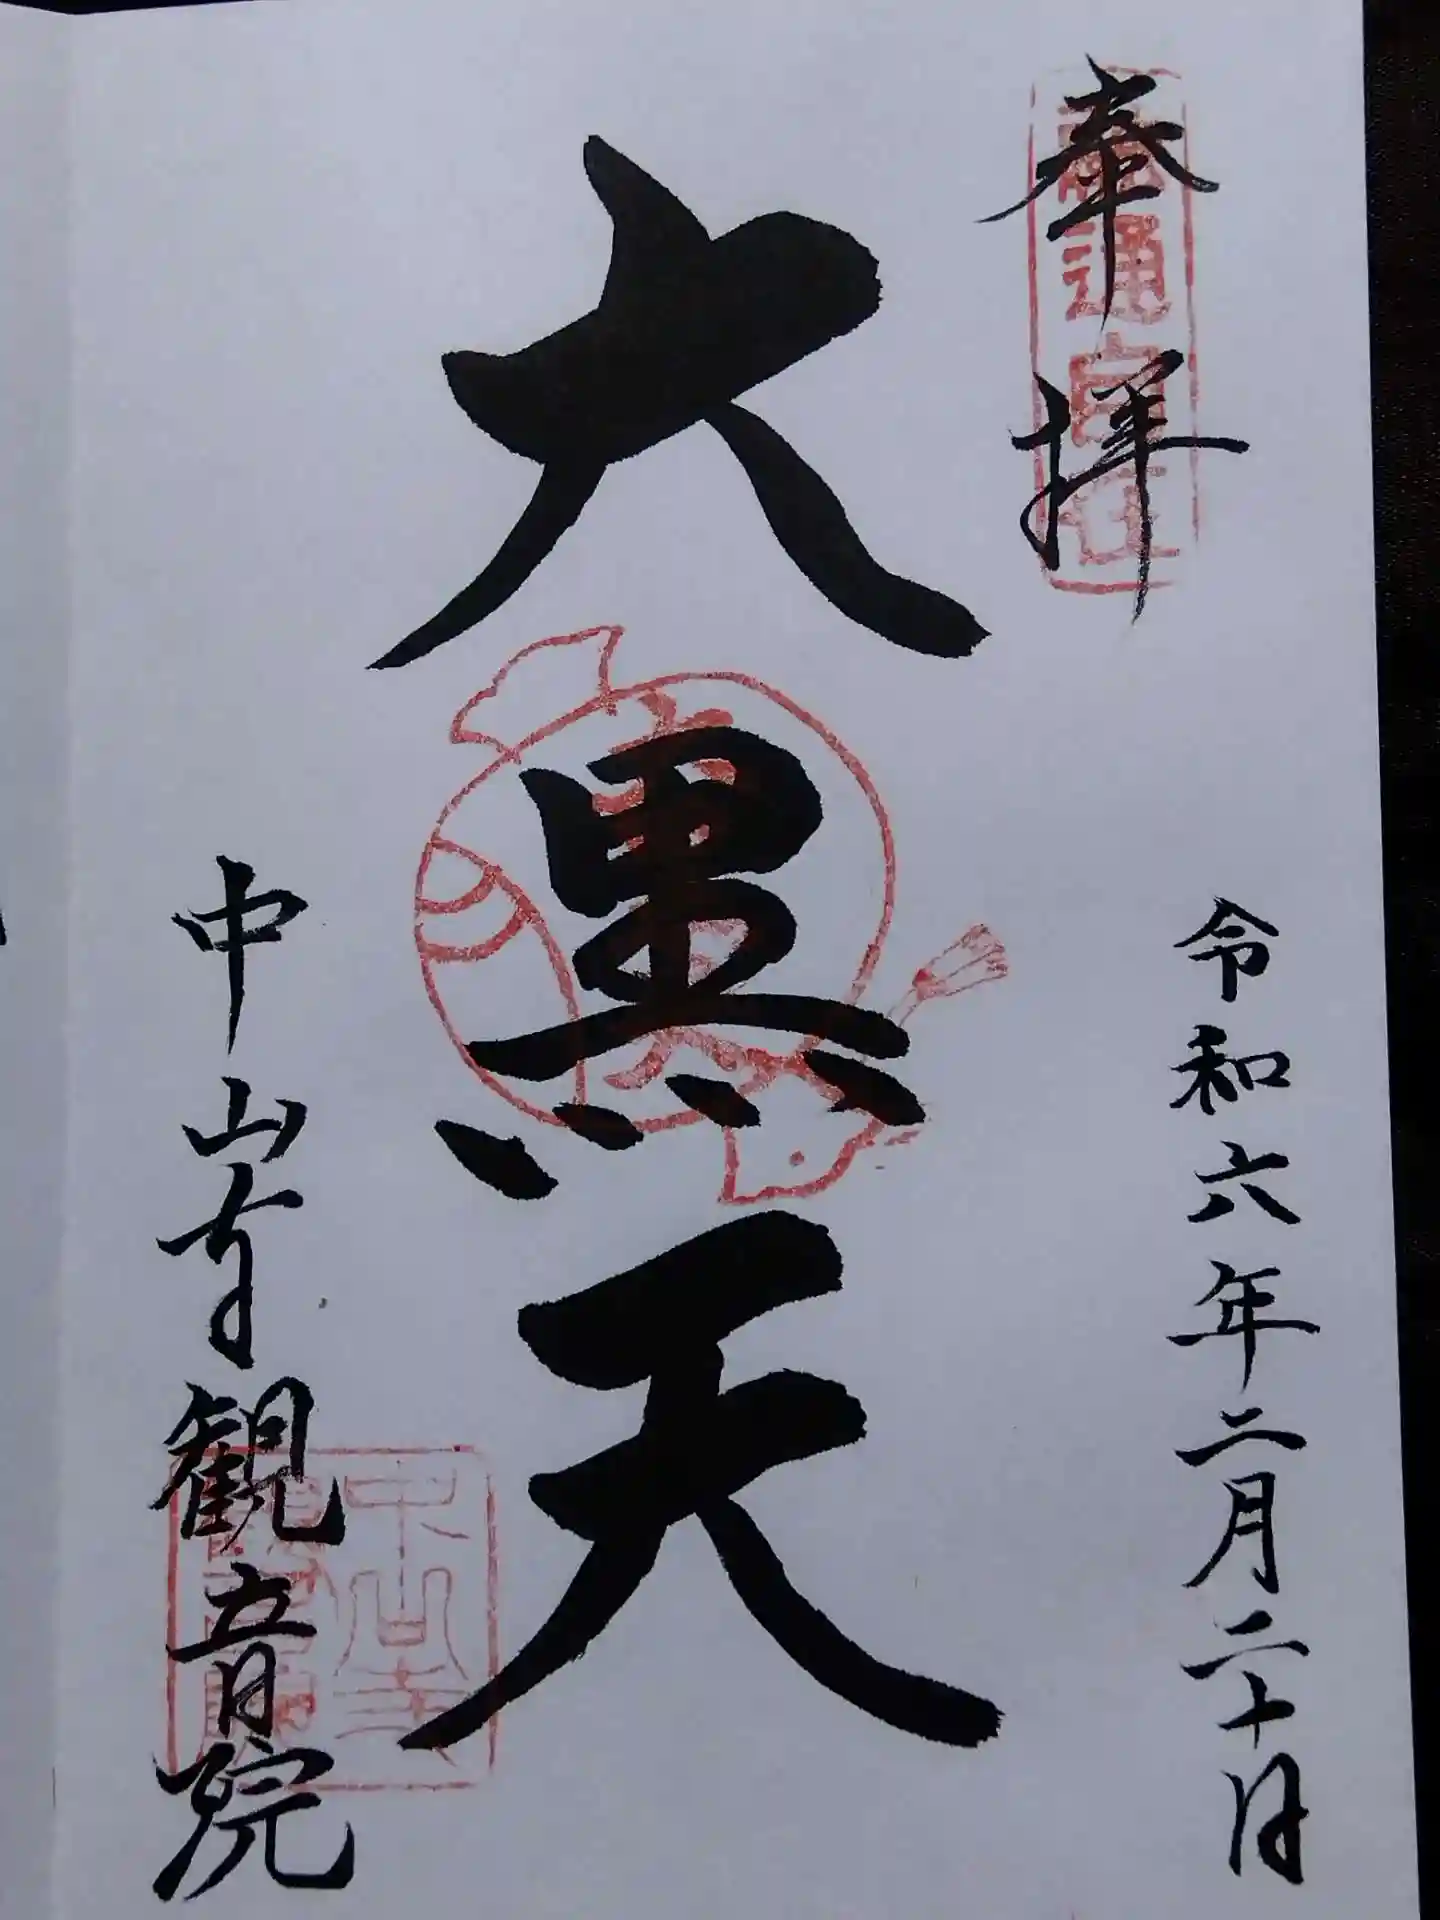 奉拝
令和六年二月二十日
大黒天
中山寺観音院
中山寺